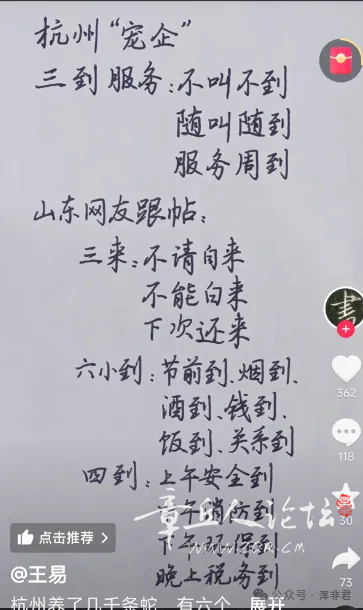 杭州“宠企”
三到服务：不叫不到
随叫随到
服务周到
山东网友跟帖：
三来：不请自来
不能白来
下次还来
六小到：节前到、烟到、
酒到、钱到、
饭到、关系到
四到：上午安全到
午消防到
下午环保到
晚上税务到
章丘人论坛
362
118
30
73
点击推荐
@王易
公众号·浑非君
杭州养了几千条蛇，有六个 展开